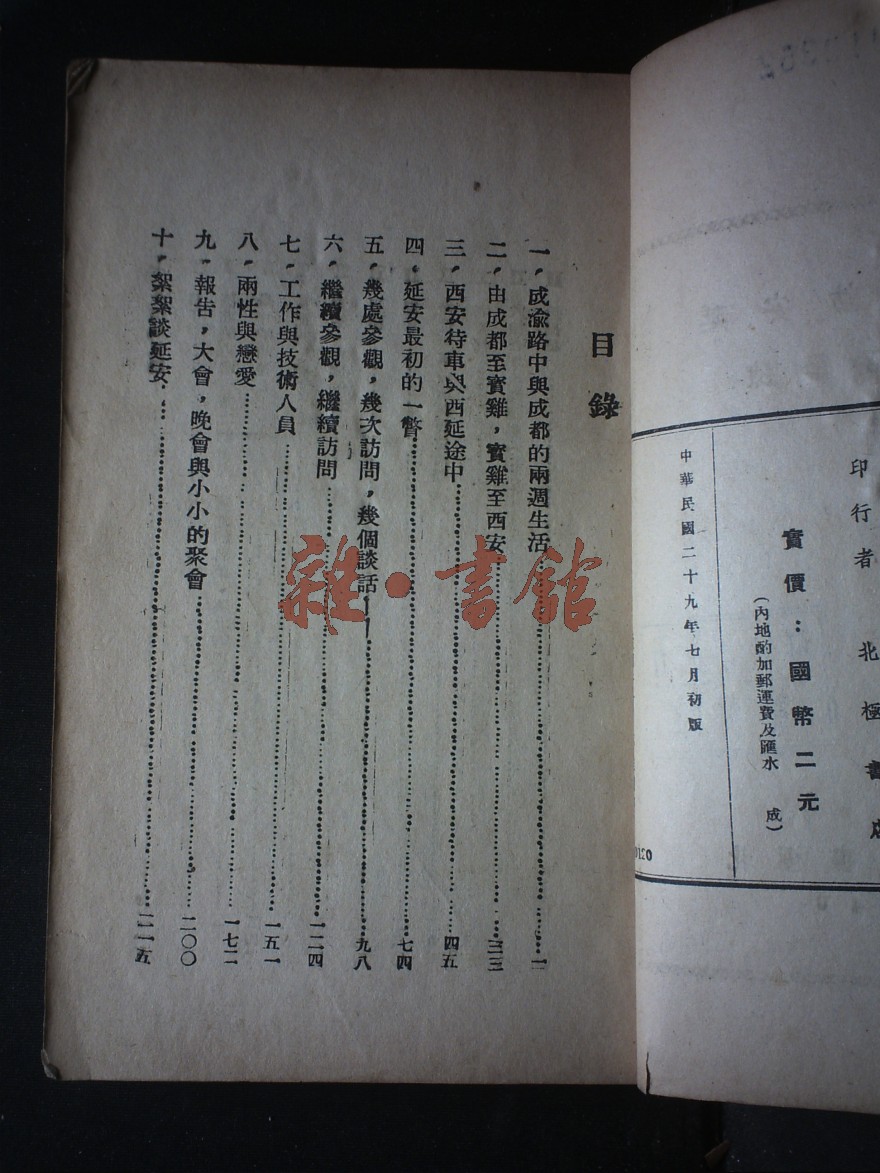 印行者 北極書店
實價：國幣二元
（內地酌加郵運費及匯水 成）
中華民國二十九年七月初版
0120
目錄
一，成渝路中與成都的兩週生活……一
二，由成都至寶雞，寶雞至西安……三三
三，西安待車與西延途中……四五
四，延安最初的一瞥……七四
五，幾處參觀，幾次訪問，幾個談話……九八
六，繼續參觀，繼續訪問……一二四
七，工作與技術人員……一五一
八，兩性與戀愛……一七二
九，報告，大會，晚會與小小的聚會……二〇〇
十，絮絮談延安……二一五
雜·書館